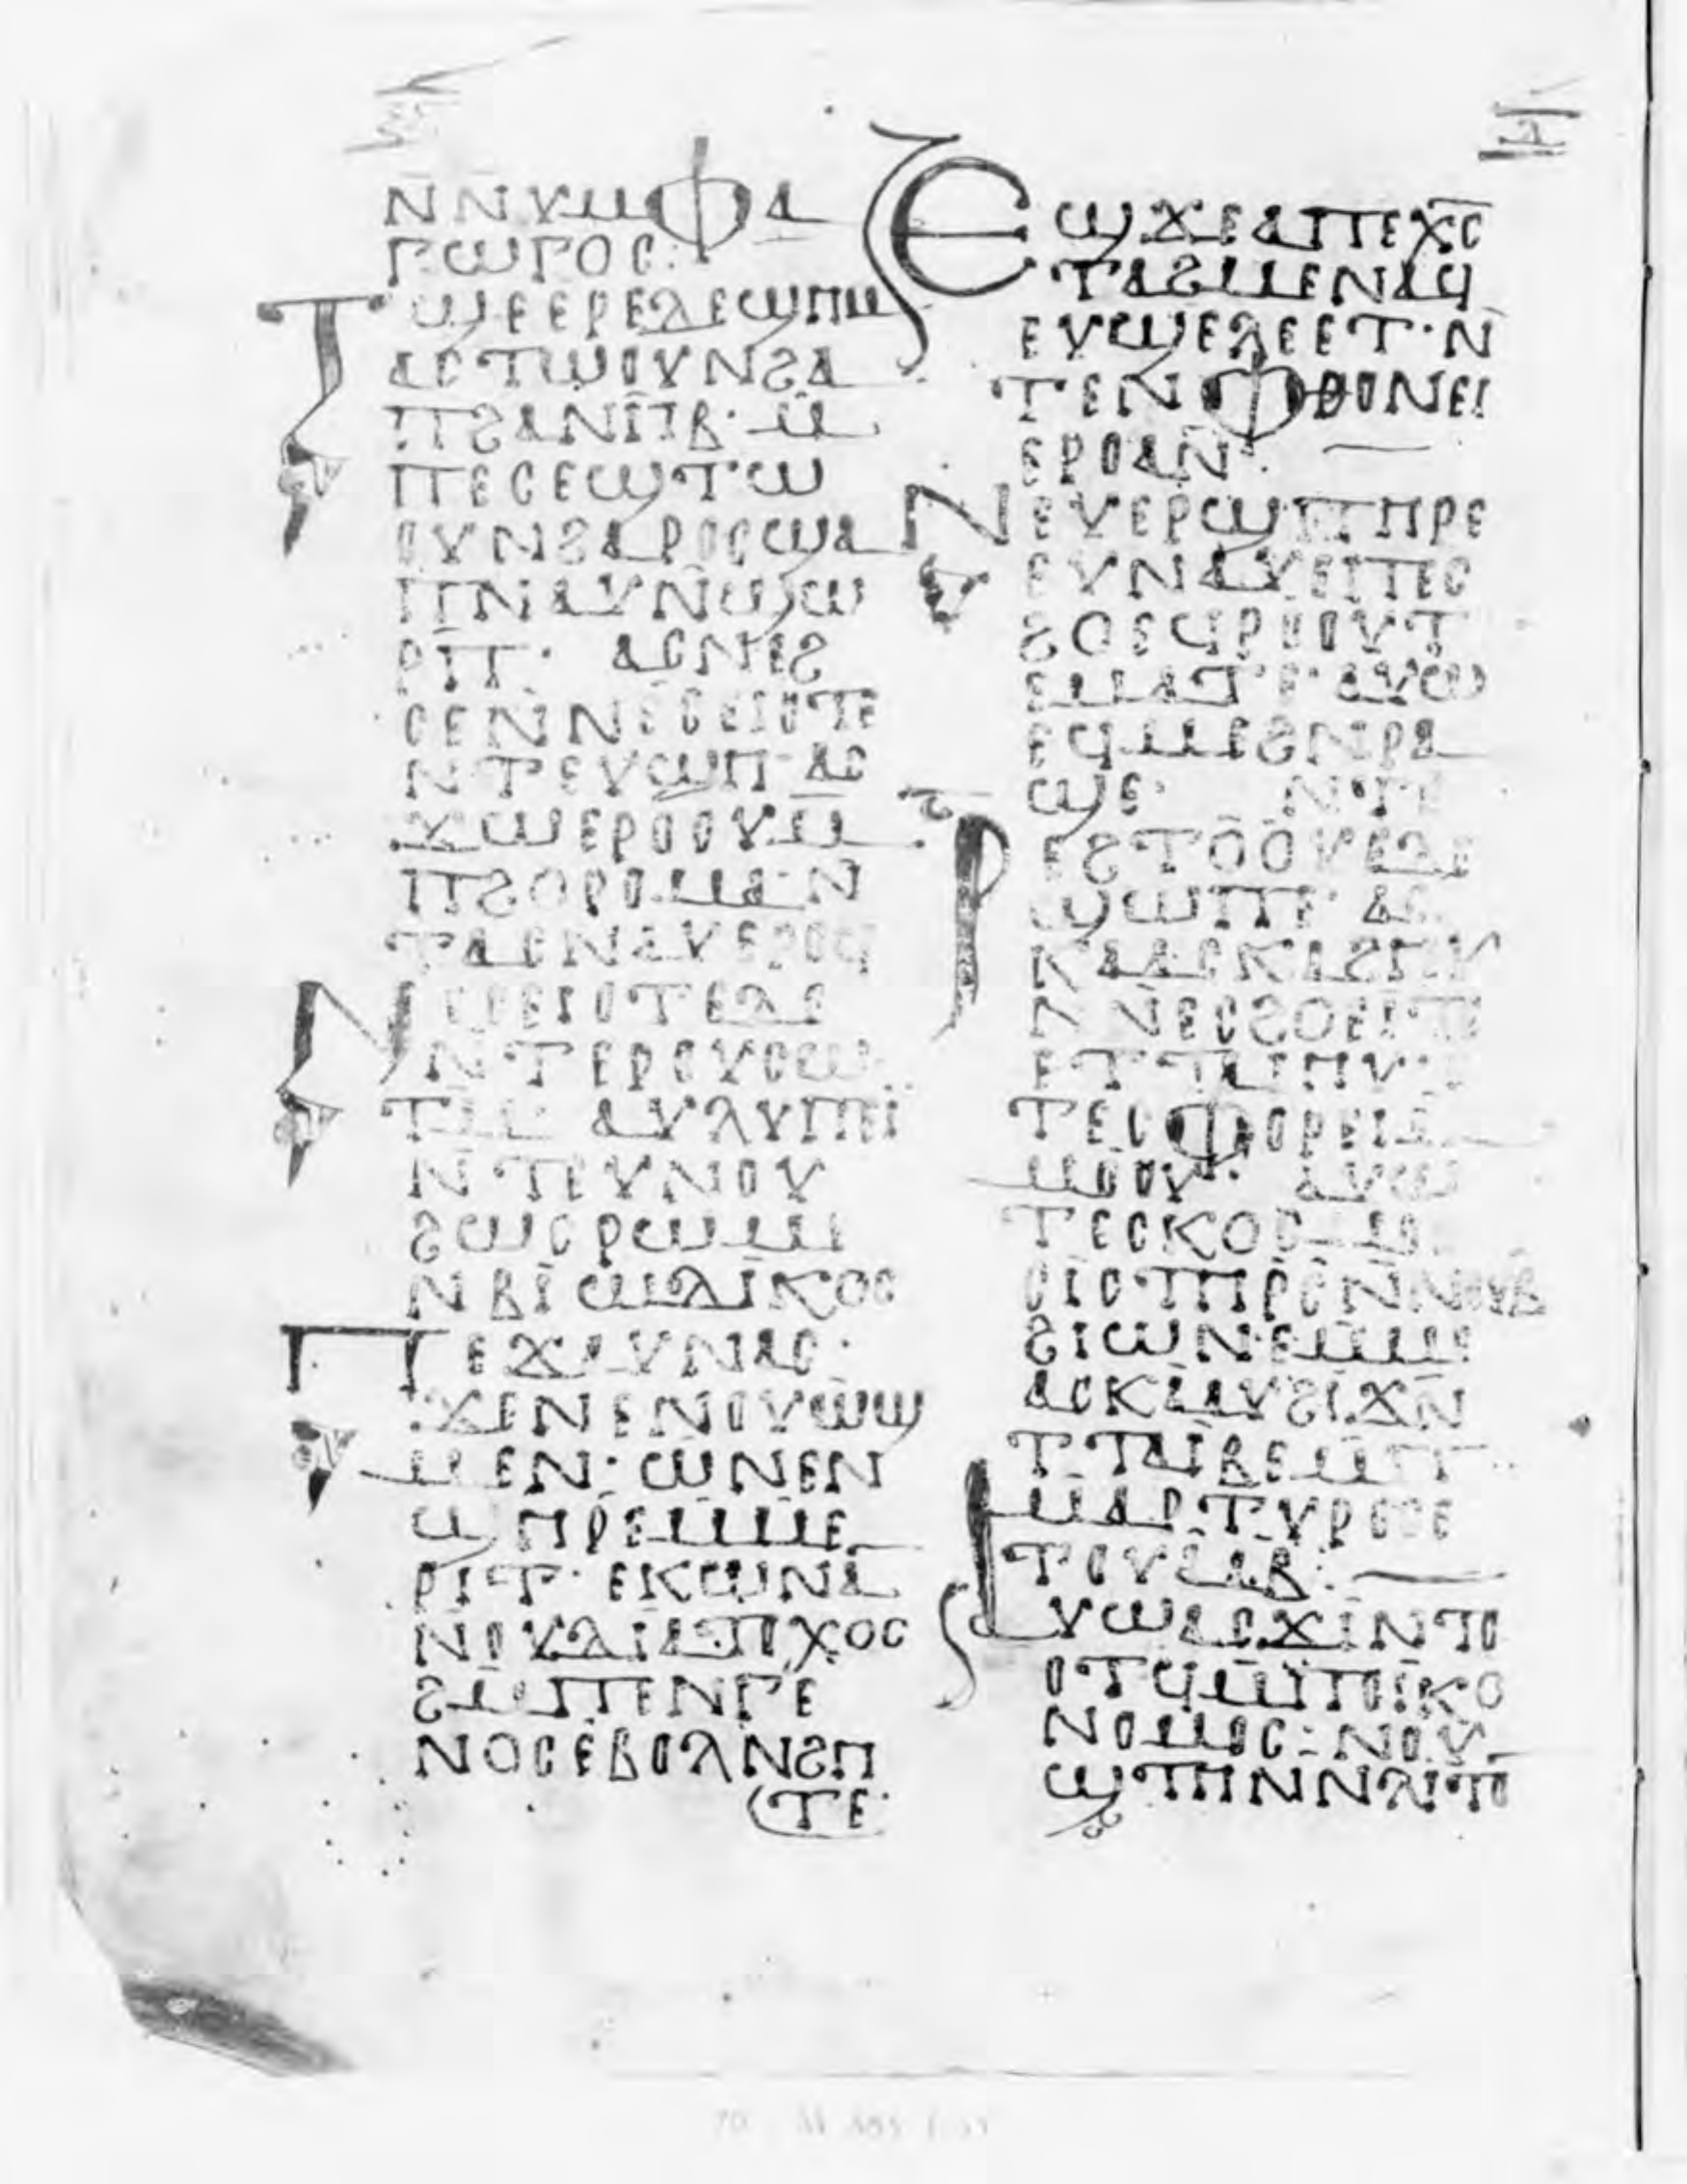 ⲛ̄ⲛⲩⲙⲫⲁ
ⲅⲱⲅⲟⲥ·
ⲧϣⲉⲉⲣⲉⲇⲉϣⲏⲙ
ⲁⲥⲧⲱⲟⲩⲛϩⲁ
ⲡϩⲁⲛⲓⲏⲃ· ⲙ̄
ⲡⲉⲥⲉϣⲧⲱ
ⲟⲩⲛϩⲁⲣⲟⲥϣⲁ
ⲡⲛⲁⲩⲛ̄ϣⲱ
ⲣⲡ̄· ⲁⲥⲛⲉϩ
ⲥⲉⲛ̄ⲛⲉⲥⲉⲓⲟⲧⲉ
ⲛⲧⲉⲩϣⲏ· ⲁⲥ
ϫⲱⲉⲣⲟⲟⲩⲙ̄
ⲡϩⲟⲣⲟⲙⲁ ⲛ
ⲧⲁⲥⲛⲁⲩⲉⲣⲟϥ
ⲛⲉⲥⲉⲓⲟⲧⲉⲇⲉ
ⲛⲧⲉⲣⲟⲩⲥⲱ
ⲧⲙ̄ ⲁⲩⲗⲩⲡⲉⲓ
ⲛ̄ⲧⲉⲩⲛⲟⲩ
ϩⲱⲥⲣⲱⲙⲉ
ⲛⲃⲓⲱⲇⲓⲕⲟⲥ
ⲡⲉϫⲁⲩⲛⲁⲥ·
ϫⲉⲛⲉⲛⲟⲩⲱϣ
ⲙⲉⲛ· ⲱⲛⲉⲛ
ϣⲏⲣⲉⲙⲙⲉ
ⲣⲓⲧ· ⲉⲕⲱⲛⲁ
ⲛⲟⲩⲇⲓⲁⲇⲟⲭⲟⲥ
ϩⲙ̄ⲡⲉⲛⲅⲉ
ⲛⲟⲥⲉⲃⲟⲗⲛϩⲏ
ⲧⲉ·
ⲉϣϫⲉⲁⲡⲉⲭ̄ⲥ̄
ⲧⲁϩⲙⲉⲛⲁϥ
ⲉⲩϣⲉⲗⲉⲉⲧ· ⲛ
ⲧⲉⲛⲫⲑⲟⲛⲉⲓ
ⲉⲣⲟⲁⲛ̄·
ⲛⲉⲩⲉⲣϣⲡⲏⲣⲉ
ⲉⲩⲛⲁⲩⲉⲡⲉⲥ
ϩⲟⲉϥⲣⲟⲟⲩⲧ
ⲉⲙⲁⲧⲉ· ⲁⲩⲱ
ⲉϥⲙⲉϩⲛⲣⲁ
ϣⲉ· ⲛⲧⲉ
ⲣⲉϩⲧⲟⲟⲩⲉⲇⲉ
ϣⲱⲡⲉ ⲁⲥ
ⲕⲁⲁⲥⲕⲁϩⲏⲩ
ⲛ̄ⲛⲉⲥϩⲟⲉⲓⲧⲉ
ⲉⲧⲧⲁⲏⲩ·
ⲧⲉⲥⲫⲟⲣⲉⲓⲙ
ⲙⲟⲟⲩ· ⲁⲩⲱ
ⲧⲉⲥⲕⲟⲥⲙⲏ
ⲥⲓⲥⲧⲏⲣⲥ̄ⲛ̄ⲛⲟⲩⲃ
ϩⲓⲱⲛⲉⲙⲙⲉ
ⲁⲥⲕⲁⲁⲩϩⲓϫⲛ̄
ⲧⲧⲁⲓⲃⲉⲙⲡ
ⲙⲁⲣⲧⲩⲣⲟⲥⲉ
ⲧⲟⲩⲁⲁⲃ·
ⲁⲩⲱⲁⲥϫⲓⲛⲧⲟ
ⲟⲧϥⲙ̄ⲡⲟⲓⲕⲟ
ⲛⲟⲙⲟⲥ· ⲛⲟⲩ
ϣⲧⲏⲛⲛⲁⲧⲟ